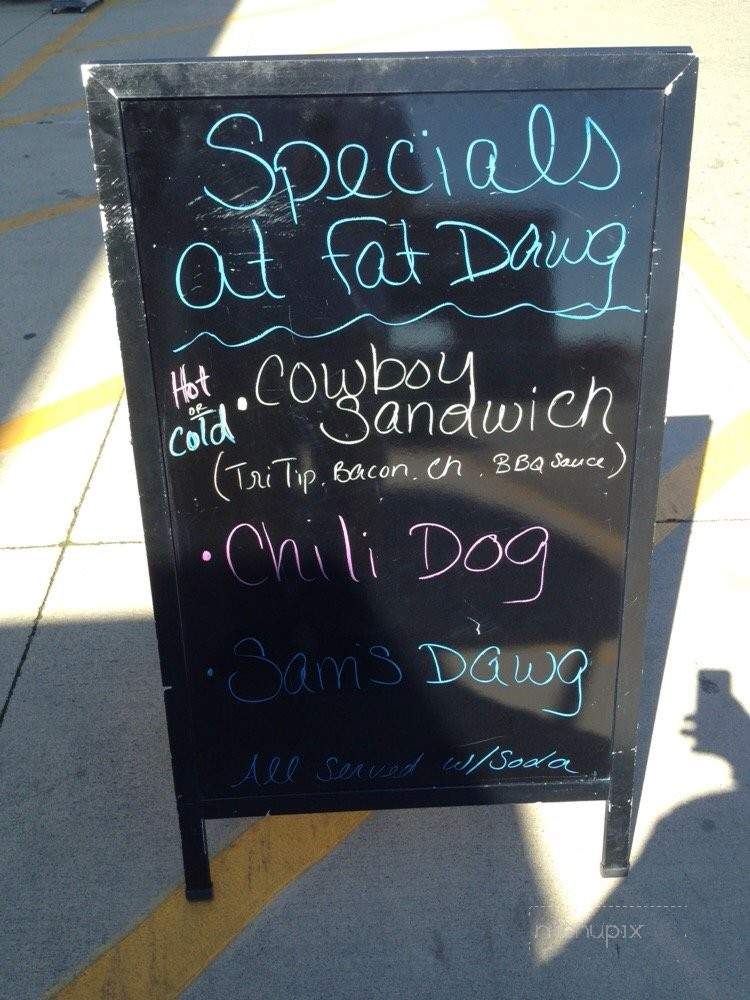 Specials
at Fat Dawg
Hot
OR
Cold
• Cowboy
Sandwich
(Tri Tip. Bacon. Ch. BBQ Sauce)
• Chili Dog
• Sam's Dawg
All Served w/ Soda
menupix